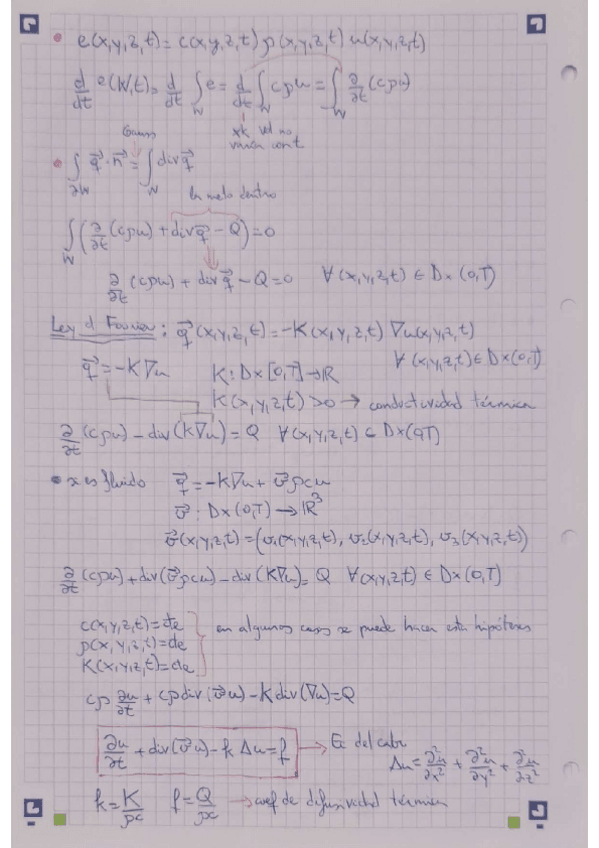 • e(x,y,z,t) = c(x,y,z,t) ρ(x,y,z,t) u(x,y,z,t)
d/dt e(W,t) = d/dt ∫_W e = d/dt ∫_W cρu = ∫_W ∂/∂t (cρu)
Gauss
xk vol no
varía con t
• ∫_∂W q⃗ · n⃗ = ∫_W div q⃗
lo meto dentro
∫_W (∂/∂t (cρu) + div q⃗ - Q) = 0
∂/∂t (cρu) + div q⃗ - Q = 0 ∀(x,y,z,t) ∈ D×(0,T)
Ley d Fourier: q⃗(x,y,z,t) = -K(x,y,z,t) ∇u(x,y,z,t)
∀(x,y,z,t) ∈ D×(0,T)
q⃗ = -K∇u K: D×[0,T] → ℝ
K(x,y,z,t) > 0 → conductividad térmica
∂/∂t (cρu) - div(K∇u) = Q ∀(x,y,z,t) ∈ D×(0,T)
• x es fluido q⃗ = -K∇u + v⃗ρcu
v⃗: D×(0,T) → ℝ³
v⃗(x,y,z,t) = (v₁(x,y,z,t), v₂(x,y,z,t), v₃(x,y,z,t))
∂/∂t (cρu) + div(v⃗ρcu) - div(K∇u) = Q ∀(x,y,z,t) ∈ D×(0,T)
c(x,y,z,t) = cte
ρ(x,y,z,t) = cte
K(x,y,z,t) = cte
en algunos casos se puede hacer esta hipótesis
cρ ∂u/∂t + cρ div(v⃗u) - K div(∇u) = Q
∂u/∂t + div(v⃗u) - k Δu = f → Ec del calor
Δu = ∂²u/∂x² + ∂²u/∂y² + ∂²u/∂z²
k = K/ρc f = Q/ρc → coef de difusividad térmica